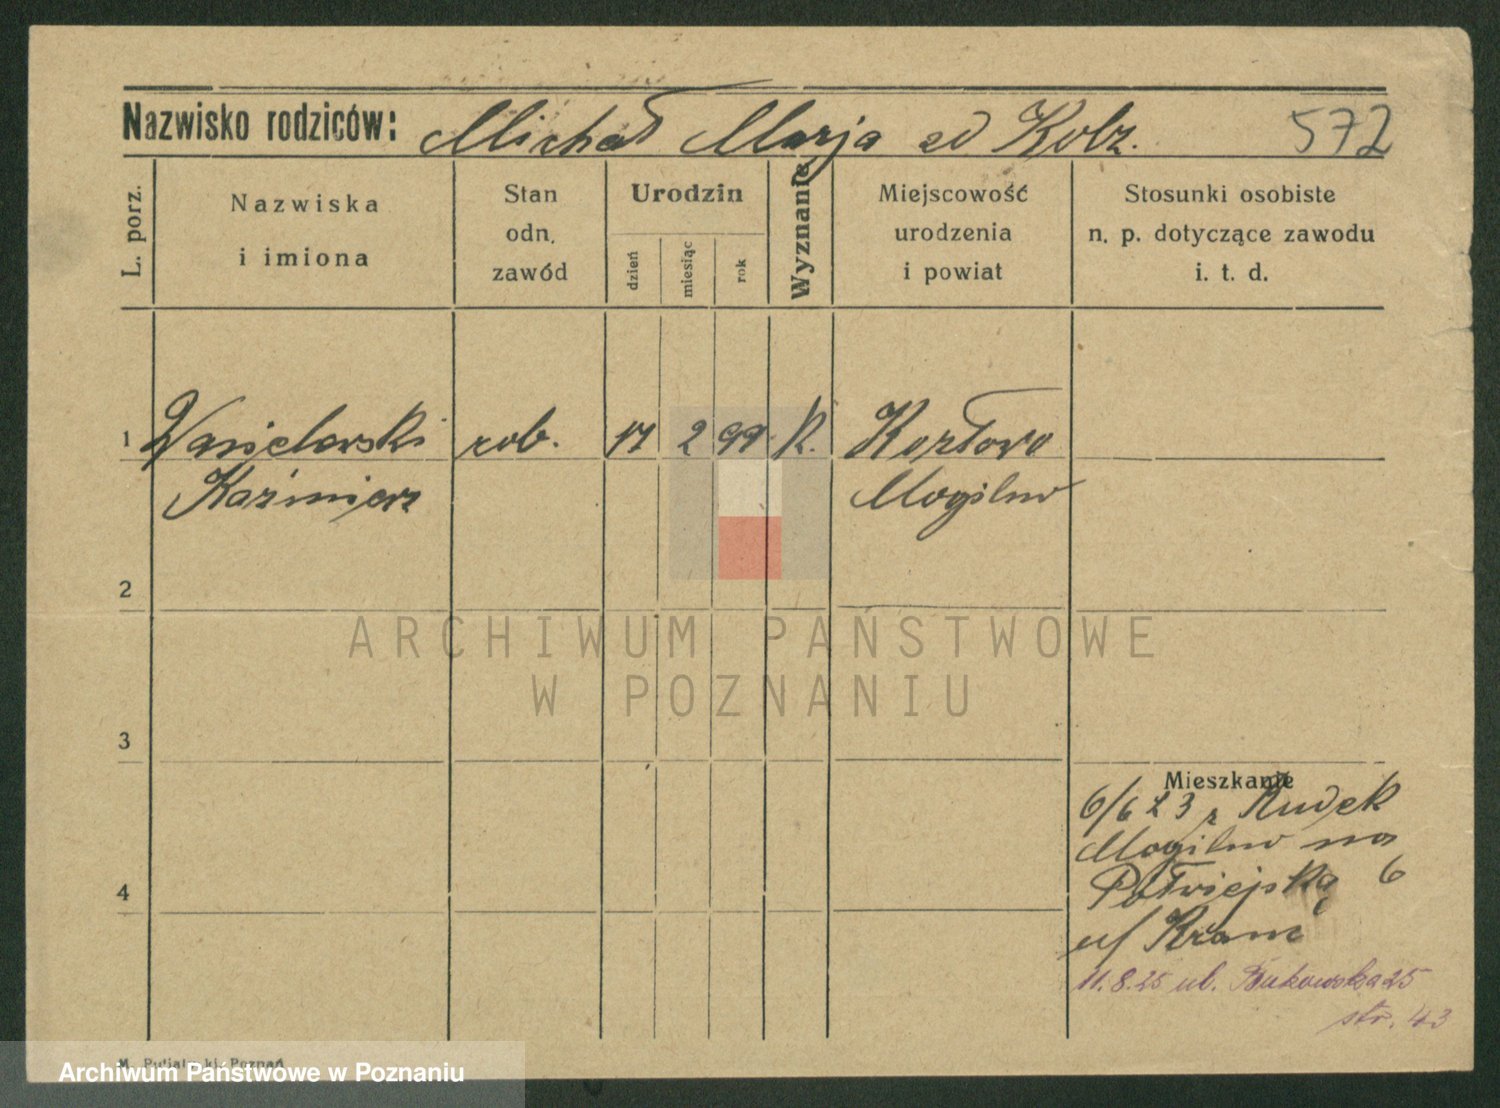 Nazwisko rodziców: Michał Marja zd Kolz. 572
L. porz.
Nazwiska
i imiona
Stan
odn.
zawód
Urodzin
dzień
miesiąc
rok
Wyznanie
Miejscowość
urodzenia
i powiat
Stosunki osobiste
n. p. dotyczące zawodu
i. t. d.
1 Wasielewski rob. 17 2 99 K.
Kaźmierz
Mogilno
2
ARCHIWUM PAŃSTWOWE
W POZNANIU
3
Mieszkanie
6/6 23 z Rudek
Mogilno na
Półwiejską 6
u/ Kranc
4
11.8.25 ul. Bukowska 25
str. 43
Poznań
Archiwum Państwowe w Poznaniu